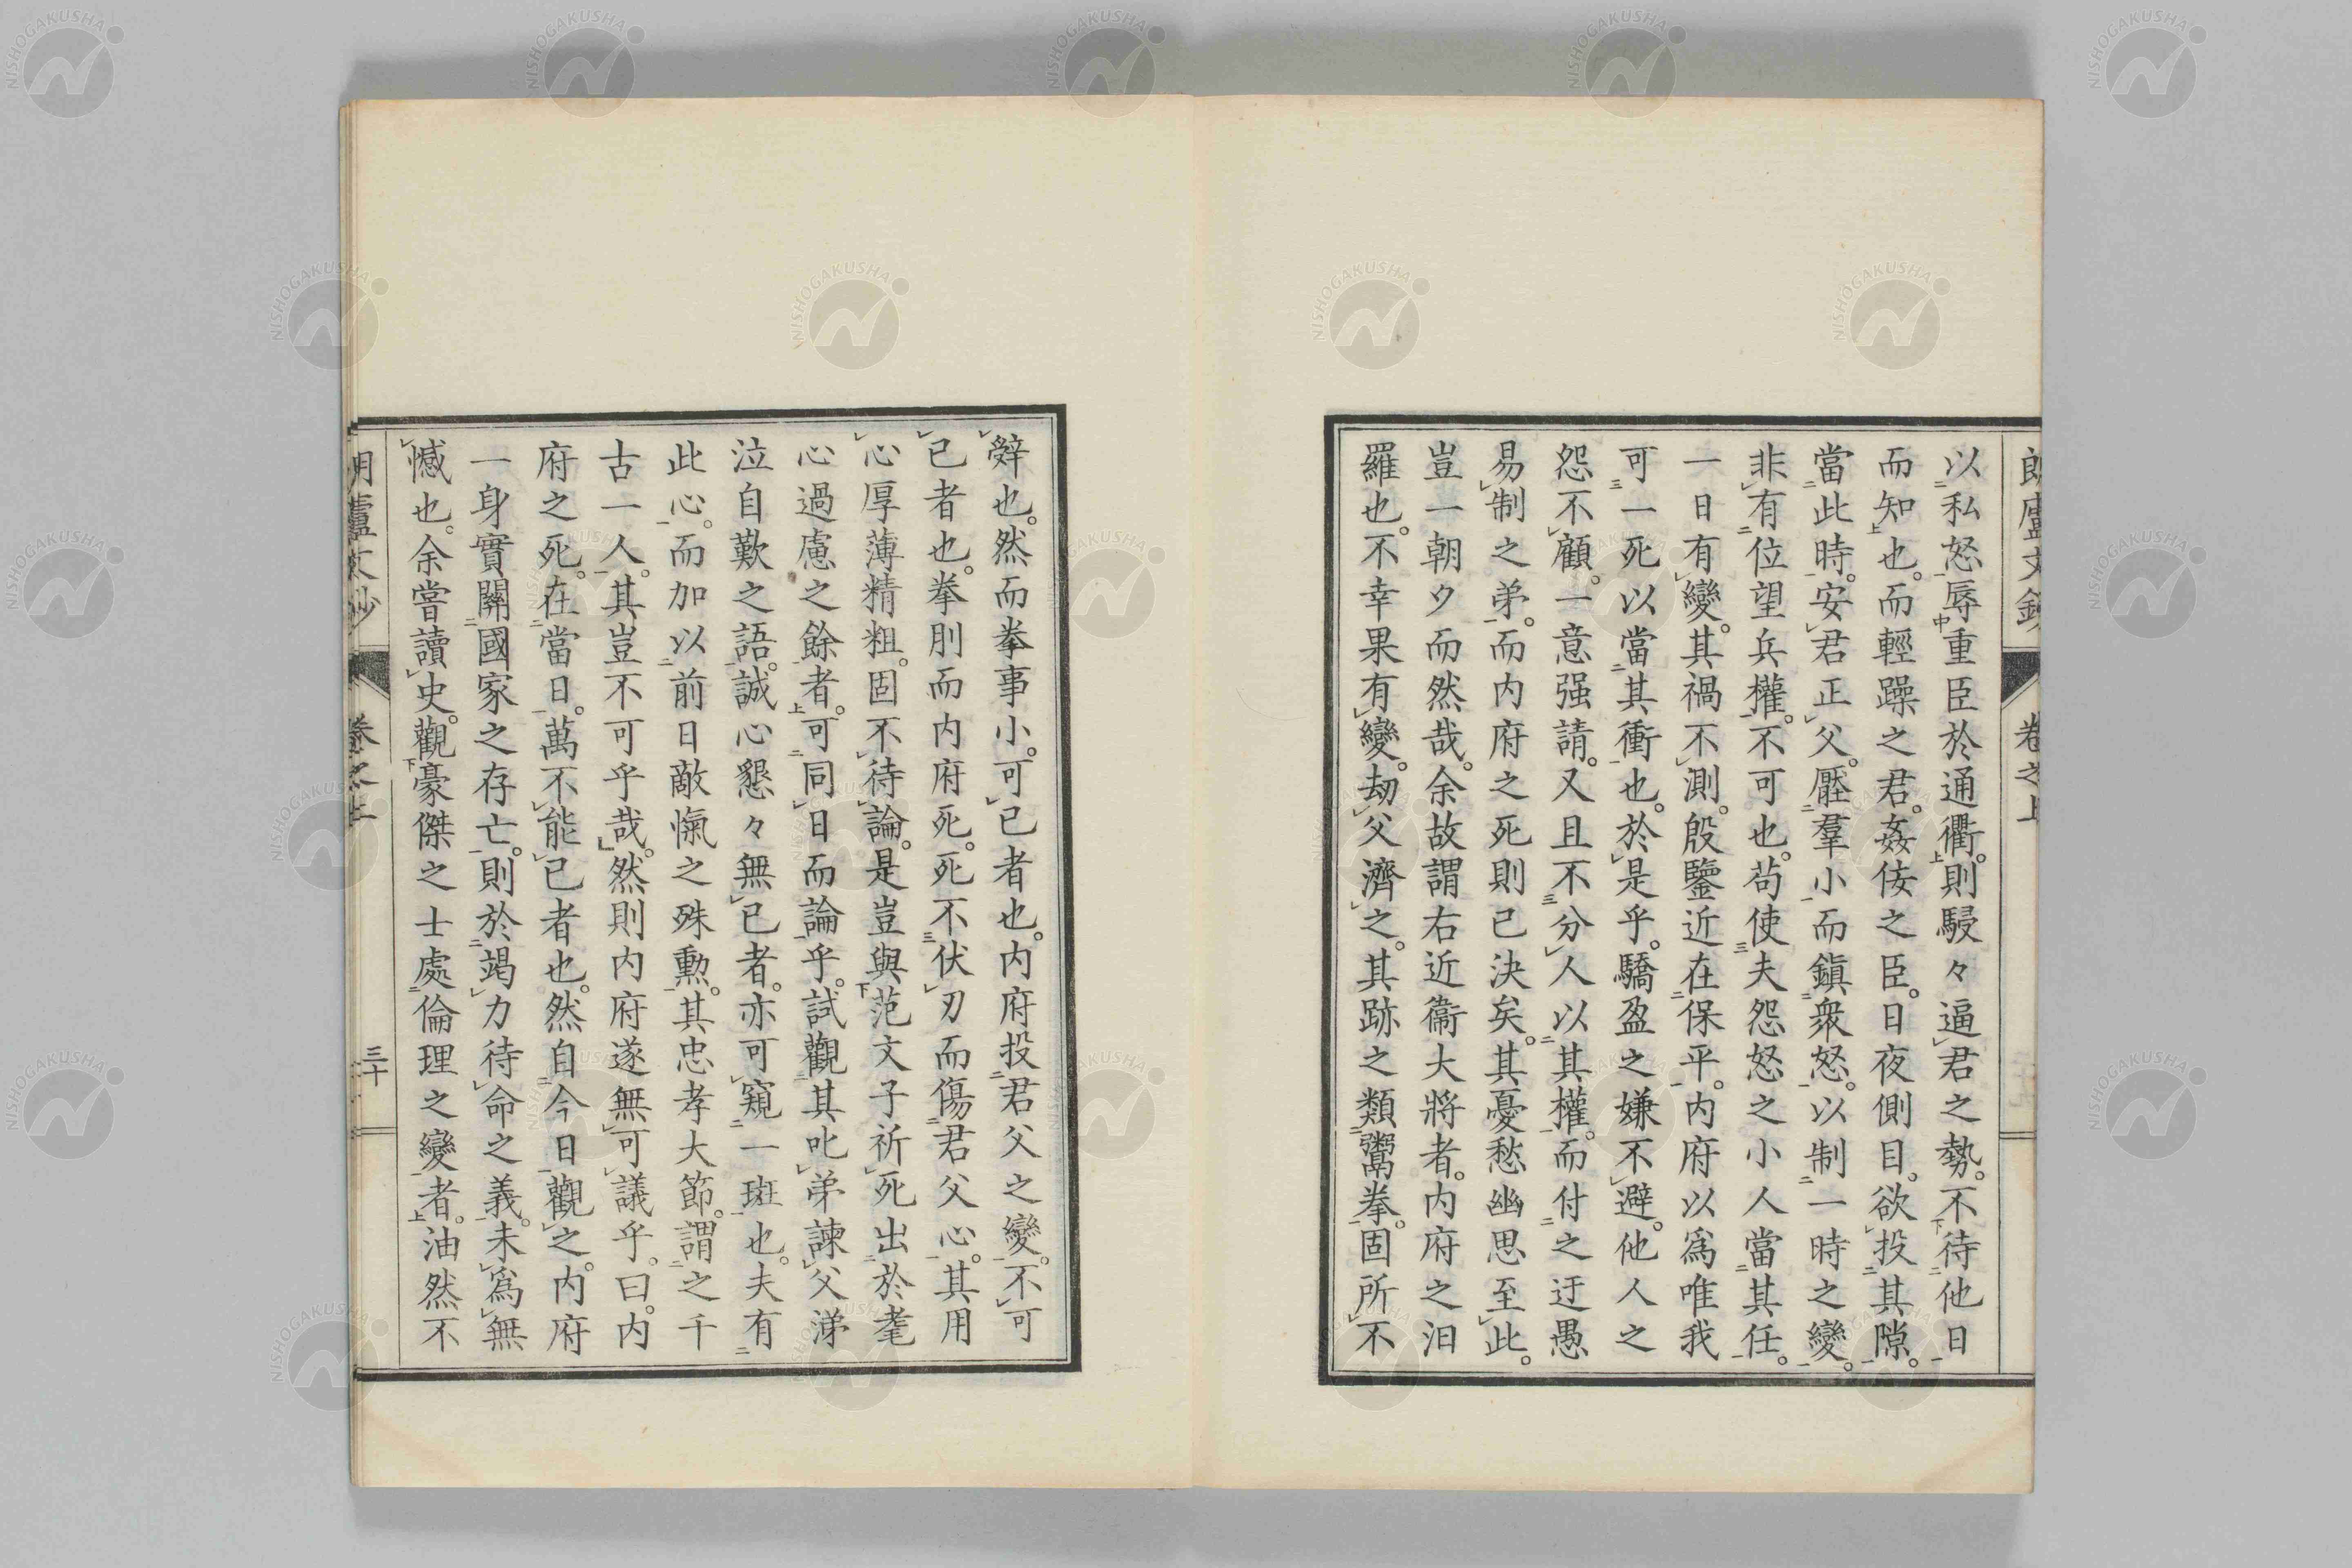 以私怒辱重臣於通衢。則駸々逼君之勢。不待他日
而知也。而輕躁之君。姦佞之臣。日夜側目。欲投其隙。
當此時。安君正父。壓羣小而鎭衆怒。以制一時之變。
非有位望兵權。不可也。苟使夫怨怒之小人當其任。
一日有變。其禍不測。殷鑒近在保平。内府以爲唯我
可一死以當其衝也。於是乎。驕盈之嫌不避。他人之
怨不顧。一意强請。又且不分人以其權。而付之迂愚
易制之弟。而内府之死則已決矣。其憂愁幽思至此。
豈一朝夕而然哉。余故謂右近衞大將者。内府之汨
羅也。不幸果有變。劫父濟之。其跡之類鬻拳。固所不
辤也。然而拳事小。可已者也。内府投君父之變。不可
已者也。拳刖而内府死。死不伏刃而傷君父心。其用
心厚薄精粗。固不待論。是豈與范文子祈死出於耄
心過慮之餘者。可同日而論乎。試觀其叱弟諫父涕
泣自歎之語。誠心懇々無已者。亦可窺一斑也。夫有
此心。而加以前日敵愾之殊勲。其忠孝大節。謂之千
古一人。其豈不可乎哉。然則内府遂無可議乎。曰。内
府之死。在當日。萬不能已者也。然自今日觀之。内府
一身實關國家之存亡。則於竭力待命之義。未爲無
憾也。余嘗讀史。觀豪傑之士處倫理之變者。油然不
卷之上
三十